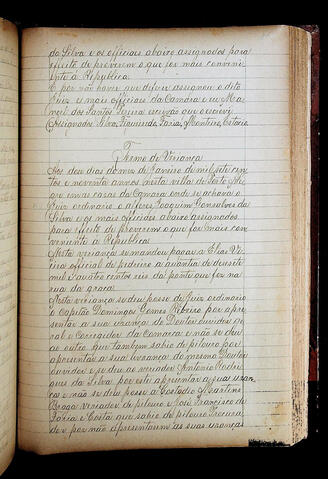 da Silva e os officiaes abaixo assignados para
effeito de proverem o que for mais conveni
ente á Republica.
E por não haver que diferir assignou o dito
Juiz e mais officiaes da Camara e eu Ma-
noel dos Santos Pereira escrivão escrevi.
Assignados Silva, Figueiredo, Faria, Monteiro, Estacio.
Termo de Veriança
Aos dous dias do mez de Janeiro de mil sete cen
tos e noventa annos nesta villa de Porto Ale
gre em as casas da Camara onde se achava o
Juiz ordinario o alferes Joaquim Gonsalves da
Silva e os mais officiaes abaixo assignados
para effeito de proverem o que for mais con
veniente á Republica
Nesta veriança se mandou pagar a Elias Vi
eira official de pedreiro a quantia de desesete
mil e quatro centos reis da ponte que fez na
rua da graça.
Nesta veriança se deu posse de Juiz ordinario
o Capitão Domingos Gomes Ribeiro por apre
sentar a sua usança do Doutor ouvidor ge
ral e Corregedor da Comarca e não se deu
ao outro que tambem sahio de pilouro por
apresentar a sua usança do mesmo Doutor
ouvidor e se deu ao vereador Antonio Rodri
gues da Silva por este apresentar a sua usan
ça e não se deu posse a Custodio Martins
Braga vereador de pilouro e José Francisco de
Faria e Costa que sahio de pilouro Procura
dor por não apresentarem as suas usanças